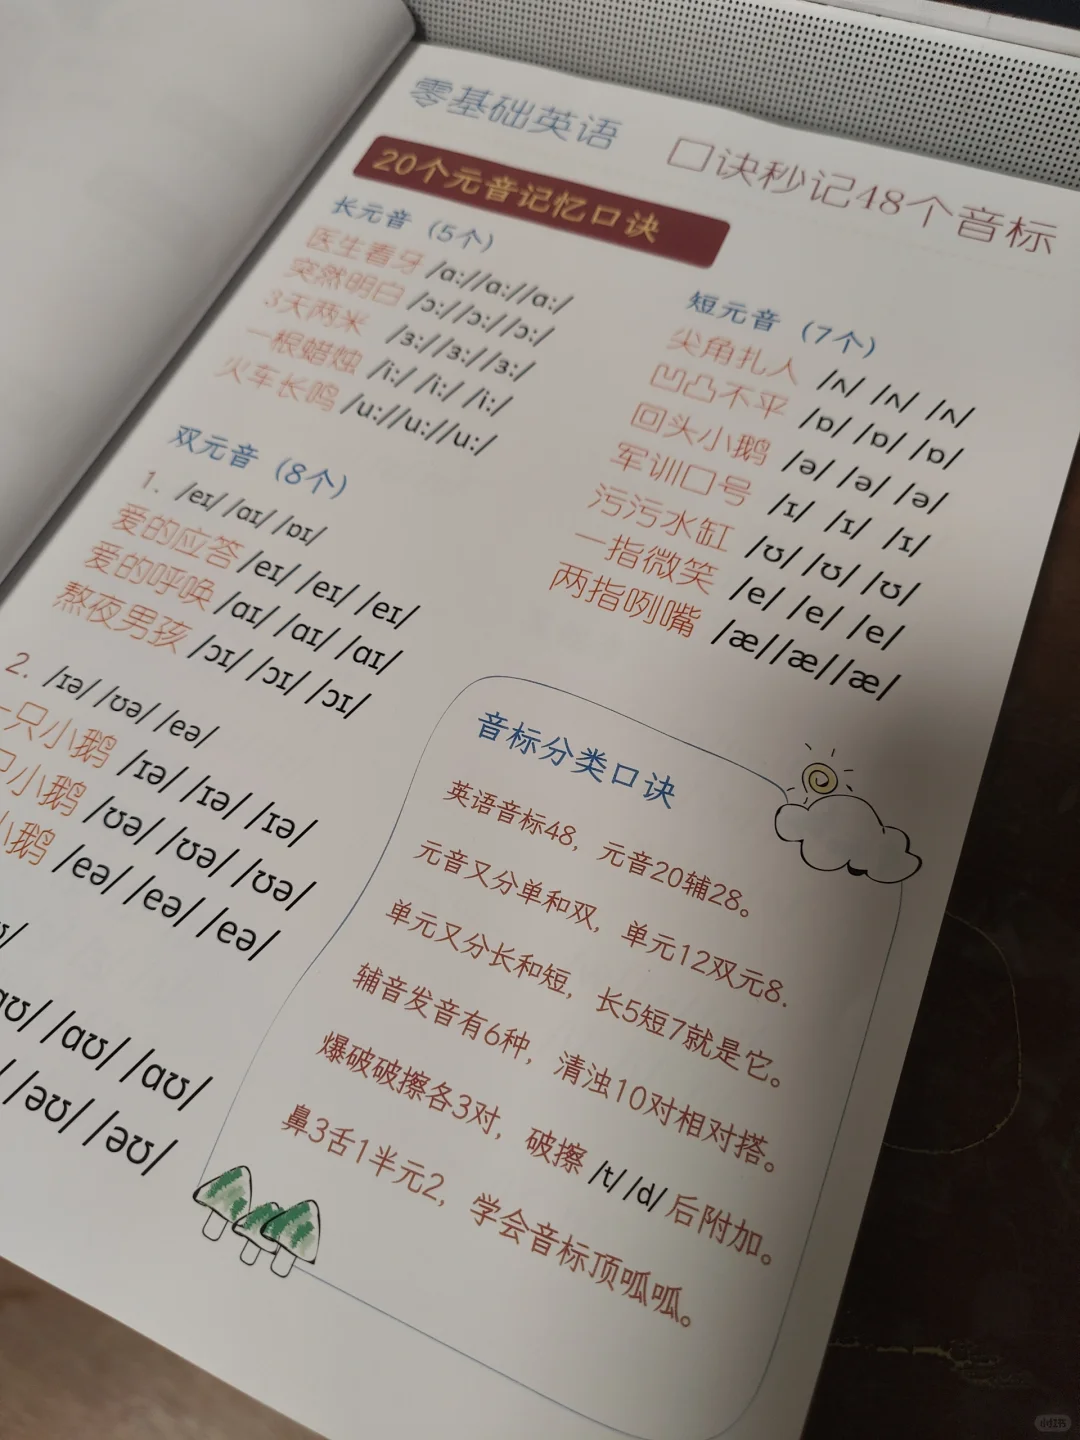 零基础英语 口诀秒记48个音标
20个元音记忆口诀
长元音（5个）
医生看牙 /ɑ://ɑ://ɑ:/
突然明白 /ɔ://ɔ://ɔ:/
3天两米 /ɜ://ɜ://ɜ:/
一根蜡烛 /i:/ /i:/ /i:/
火车长鸣 /u://u://u:/
双元音（8个）
1. /eɪ/ /ɑɪ/ /ɒɪ/
爱的应答 /eɪ/ /eɪ/ /eɪ/
爱的呼唤 /ɑɪ/ /ɑɪ/ /ɑɪ/
熬夜男孩 /ɔɪ/ /ɔɪ/ /ɔɪ/
2. /ɪə/ /ʊə/ /eə/
一只小鹅 /ɪə/ /ɪə/ /ɪə/
只小鹅 /ʊə/ /ʊə/ /ʊə/
小鹅 /eə/ /eə/ /eə/
/ɑʊ/ /ɑʊ/
/əʊ/ /əʊ/
短元音（7个）
尖角扎人 /ʌ/ /ʌ/ /ʌ/
凹凸不平 /ɒ/ /ɒ/ /ɒ/
回头小鹅 /ə/ /ə/ /ə/
军训口号 /ɪ/ /ɪ/ /ɪ/
污污水缸 /ʊ/ /ʊ/ /ʊ/
一指微笑 /e/ /e/ /e/
两指咧嘴 /æ//æ//æ/
音标分类口诀
英语音标48，元音20辅28。
元音又分单和双，单元12双元8.
单元又分长和短，长5短7就是它。
辅音发音有6种，清浊10对相对搭。
爆破破擦各3对，破擦 /t/ /d/ 后附加。
鼻3舌1半元2，学会音标顶呱呱。